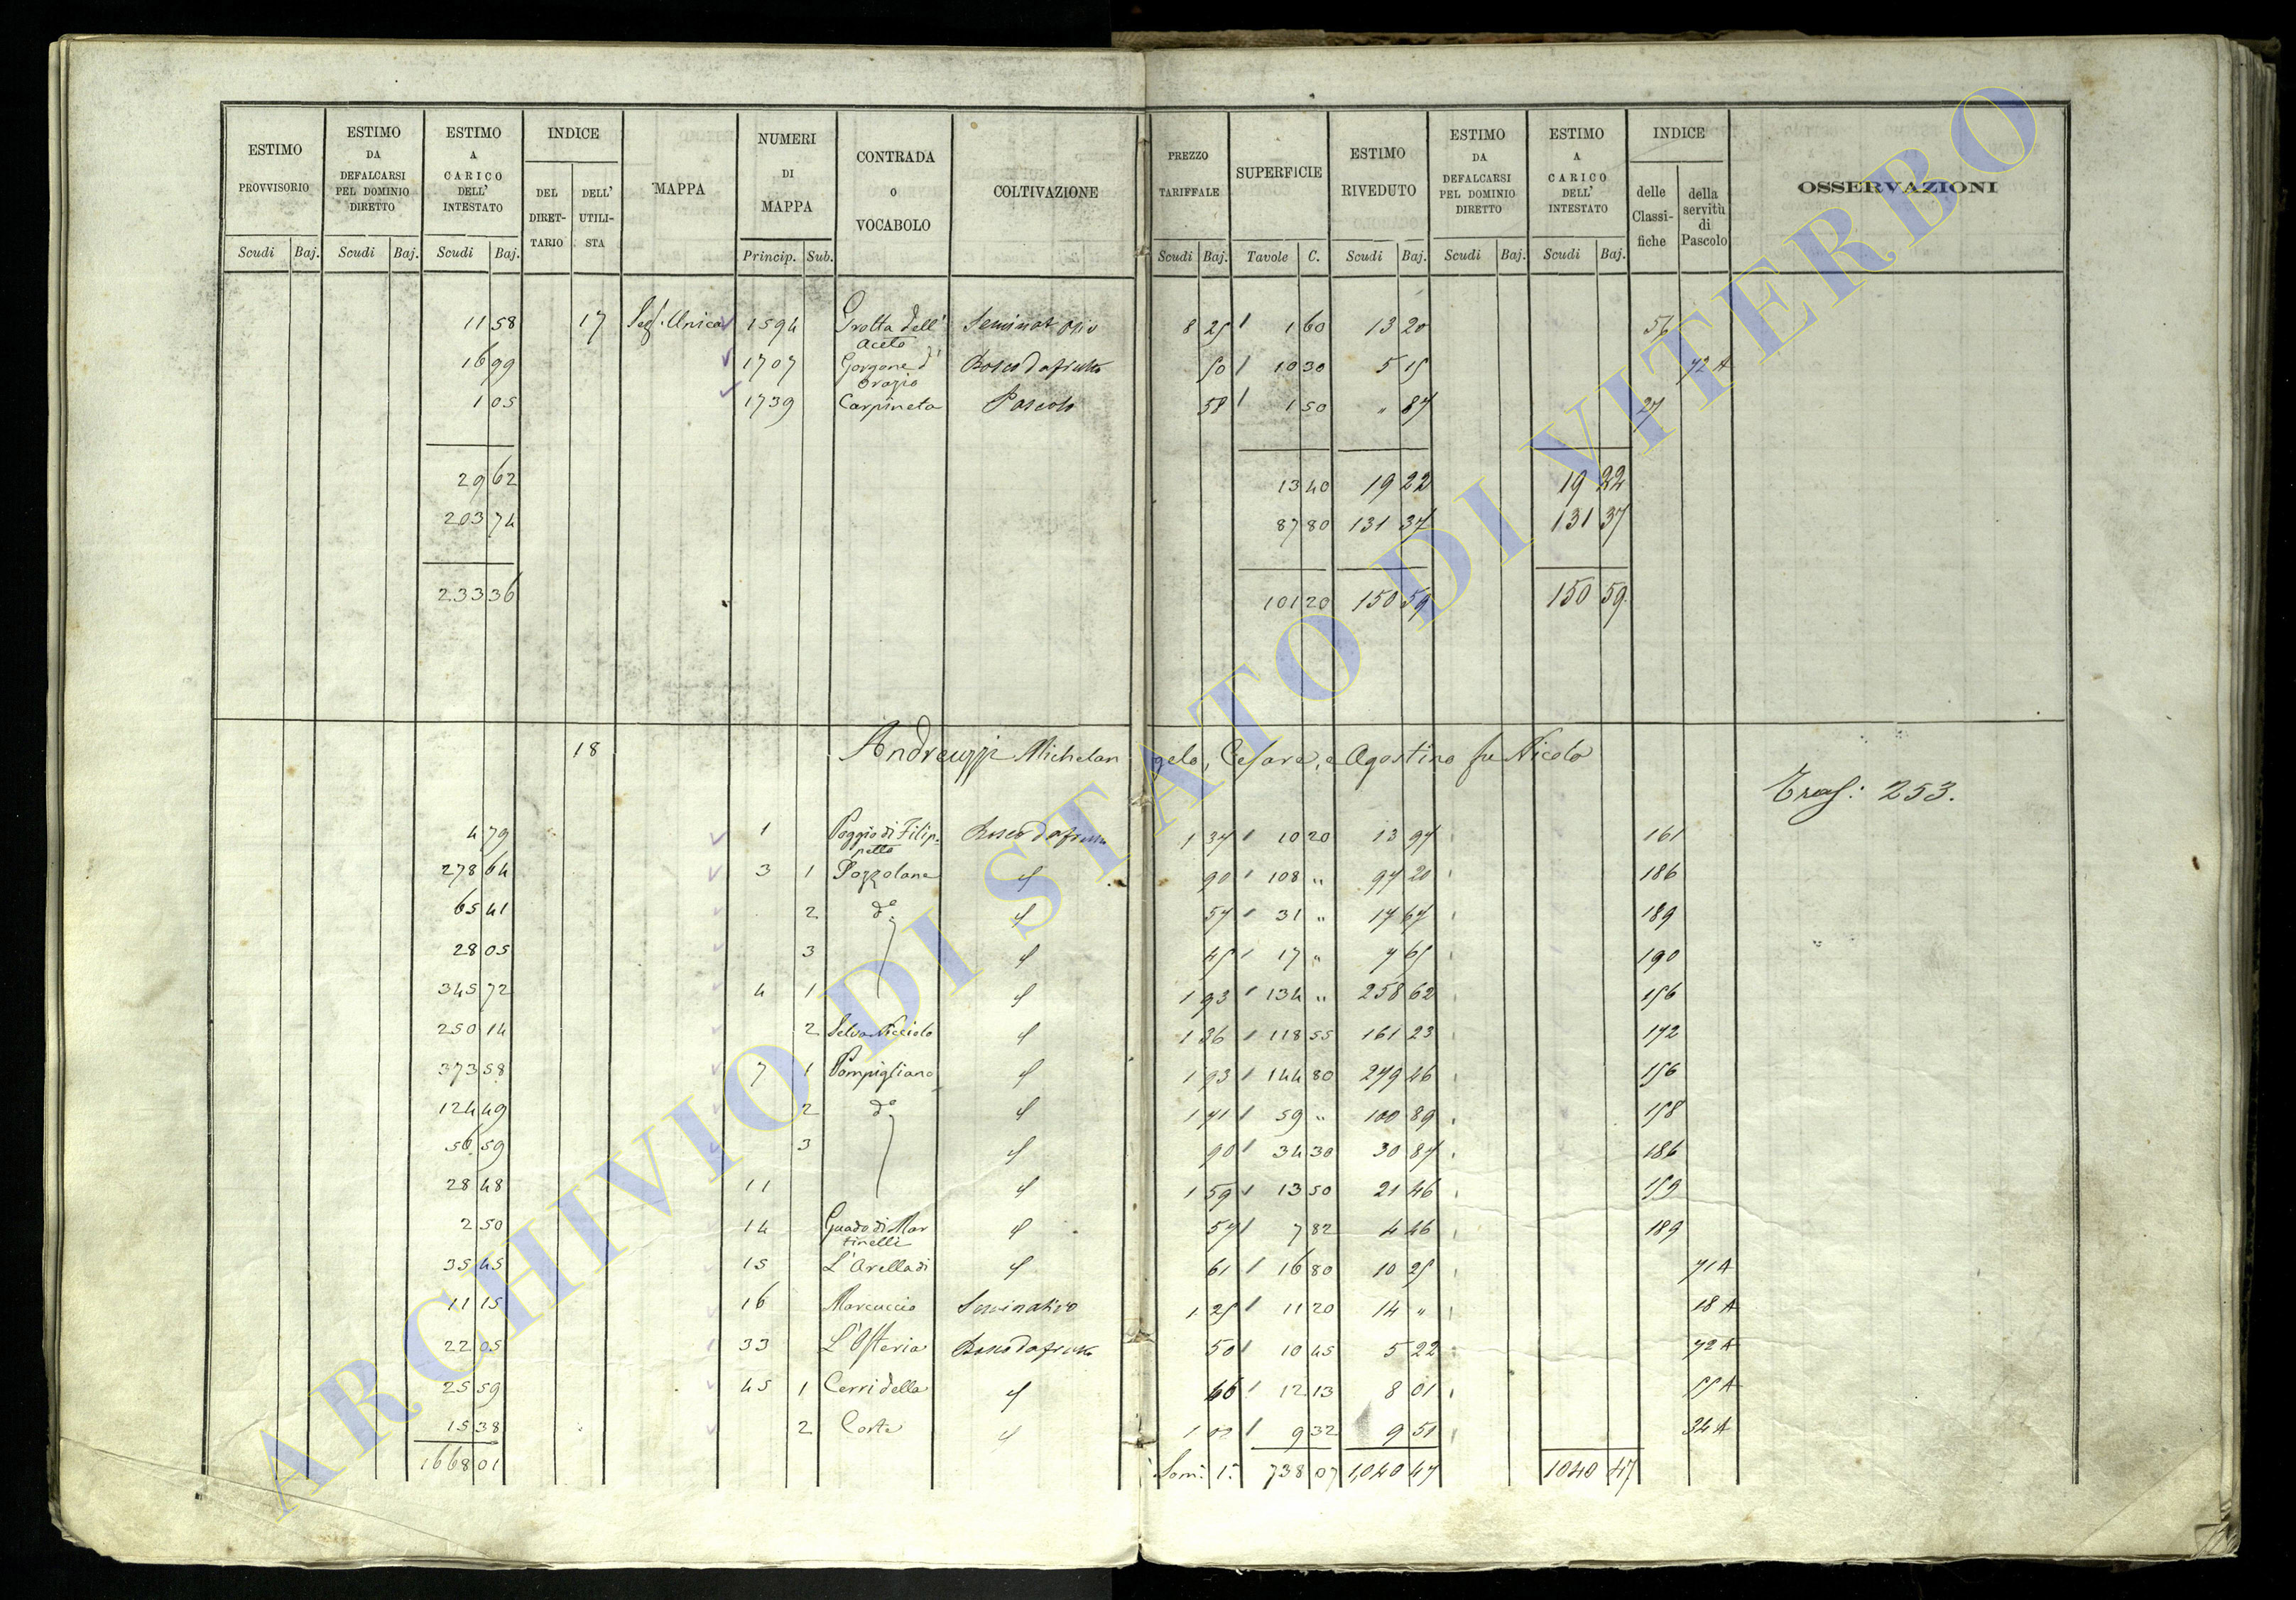 ESTIMO PROVVISORIO | ESTIMO DA DEFALCARSI PEL DOMINIO DIRETTO | ESTIMO A CARICO DELL' INTESTATO | INDICE | MAPPA | NUMERI DI MAPPA | CONTRADA O VOCABOLO | COLTIVAZIONE | PREZZO TARIFFALE | SUPERFICIE | ESTIMO RIVEDUTO | ESTIMO DA DEFALCARSI PEL DOMINIO DIRETTO | ESTIMO A CARICO DELL' INTESTATO | INDICE | OSSERVAZIONI
DEL DIRET-TARIO | DELL' UTILI-STA | delle Classi-fiche | della servitù di Pascolo
Scudi | Baj. | Scudi | Baj. | Scudi | Baj. | Princip. | Sub. | Scudi | Baj. | Tavole | C. | Scudi | Baj. | Scudi | Baj. | Scudi | Baj.
11 58 | 17 | Sez. Unica | 1594 | Grotta dell' | Seminativo | 8 25 | 1 60 | 13 20 | 56
Aceto
16 99 | 1707 | Gorgone d' | Bosco da frutto | 50 | 10 30 | 5 15 | 72 A
Orazio
1 05 | 1739 | Carpineta | Pascolo | 58 | 1 50 | " 87 | 27
29 62 | 13 40 | 19 22 | 19 22
203 74 | 87 80 | 131 37 | 131 37
233 36 | 101 20 | 150 59 | 150 59
18 | Andreuzzi Michelangelo, Cesare, e Agostino fu Nicola
Tras: 253.
4 79 | 1 | Poggio di Filip= | Bosco da frutto | 1 37 | 10 20 | 13 97 | 161
petto
278 64 | 3 | 1 | Pozzolana | 90 | 108 " | 97 20 | 186
65 41 | 2 | do | 57 | 31 " | 17 67 | 189
28 05 | 3 | 45 | 17 " | 7 65 | 190
345 72 | 4 | 1 | 1 93 | 134 " | 258 62 | 156
250 14 | 2 | Selva | 1 36 | 118 55 | 161 23 | 172
373 58 | 7 | 1 | Pompigliano | 1 93 | 144 80 | 279 46 | 156
124 49 | 2 | do | 1 71 | 59 " | 100 89 | 158
56 59 | 3 | 90 | 34 30 | 30 87 | 186
28 48 | 11 | 1 59 | 13 50 | 21 46 | 159
2 50 | 14 | Guado di Mar | 57 | 7 82 | 4 46 | 189
tinelli
35 45 | 15 | L'Arella di | 61 | 16 80 | 10 25 | 71 A
11 15 | 16 | Marcuccio | Seminativo | 1 25 | 11 20 | 14 " | 18 A
22 05 | 33 | L'Osteria | Bosco da frutto | 50 | 10 45 | 5 22 | 72 A
25 59 | 45 | 1 | Cerri della | 66 | 12 13 | 8 01 | 55 A
15 38 | 2 | Corte | 9 32 | 9 51 | 34 A
1668 01 | Som: 1: | 738 07 | 1,040 47 | 1040 47
ARCHIVIO DI STATO DI VITERBO